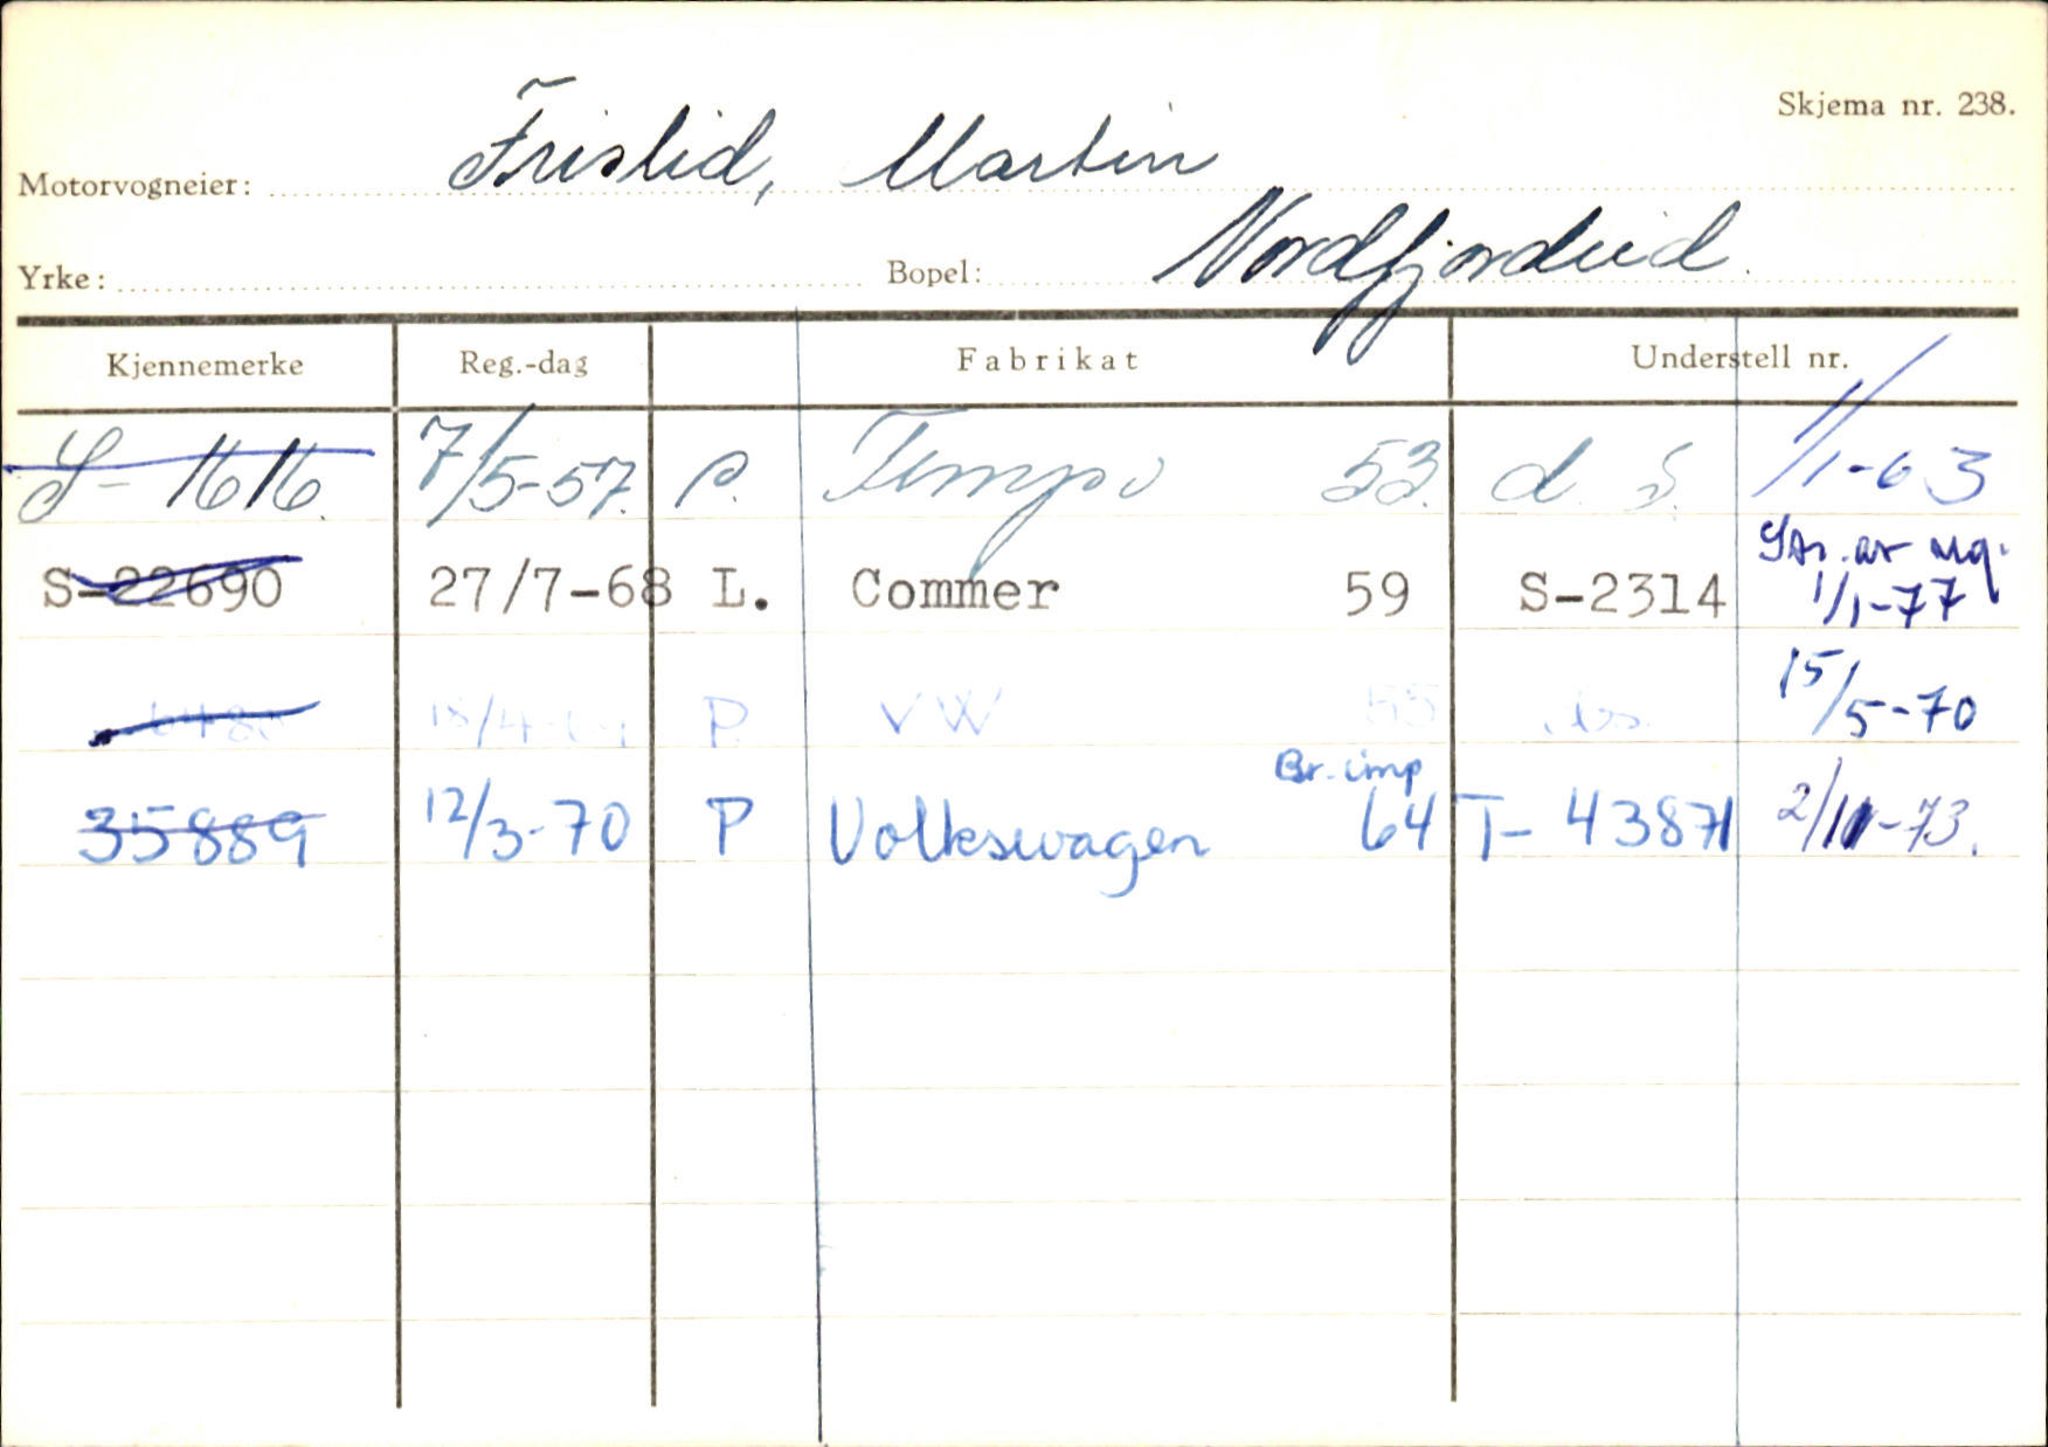 Skjema nr. 238.
Motorvogneier: Frislid, Martin
Yrke: Bopel: Nordfjordeid.
Kjennemerke Reg.-dag Fabrikat Understell nr.
S-1616. 7/5-57. P. Tempo 53. d. S. 1/1-63
Str. av mg.
S-22690 27/7-68 L. Commer 59 S-2314 1/1-77
P VW 55 15/5-70
Br. imp
35889 12/3-70 P Volkswagen 64 T-43871 2/11-73.